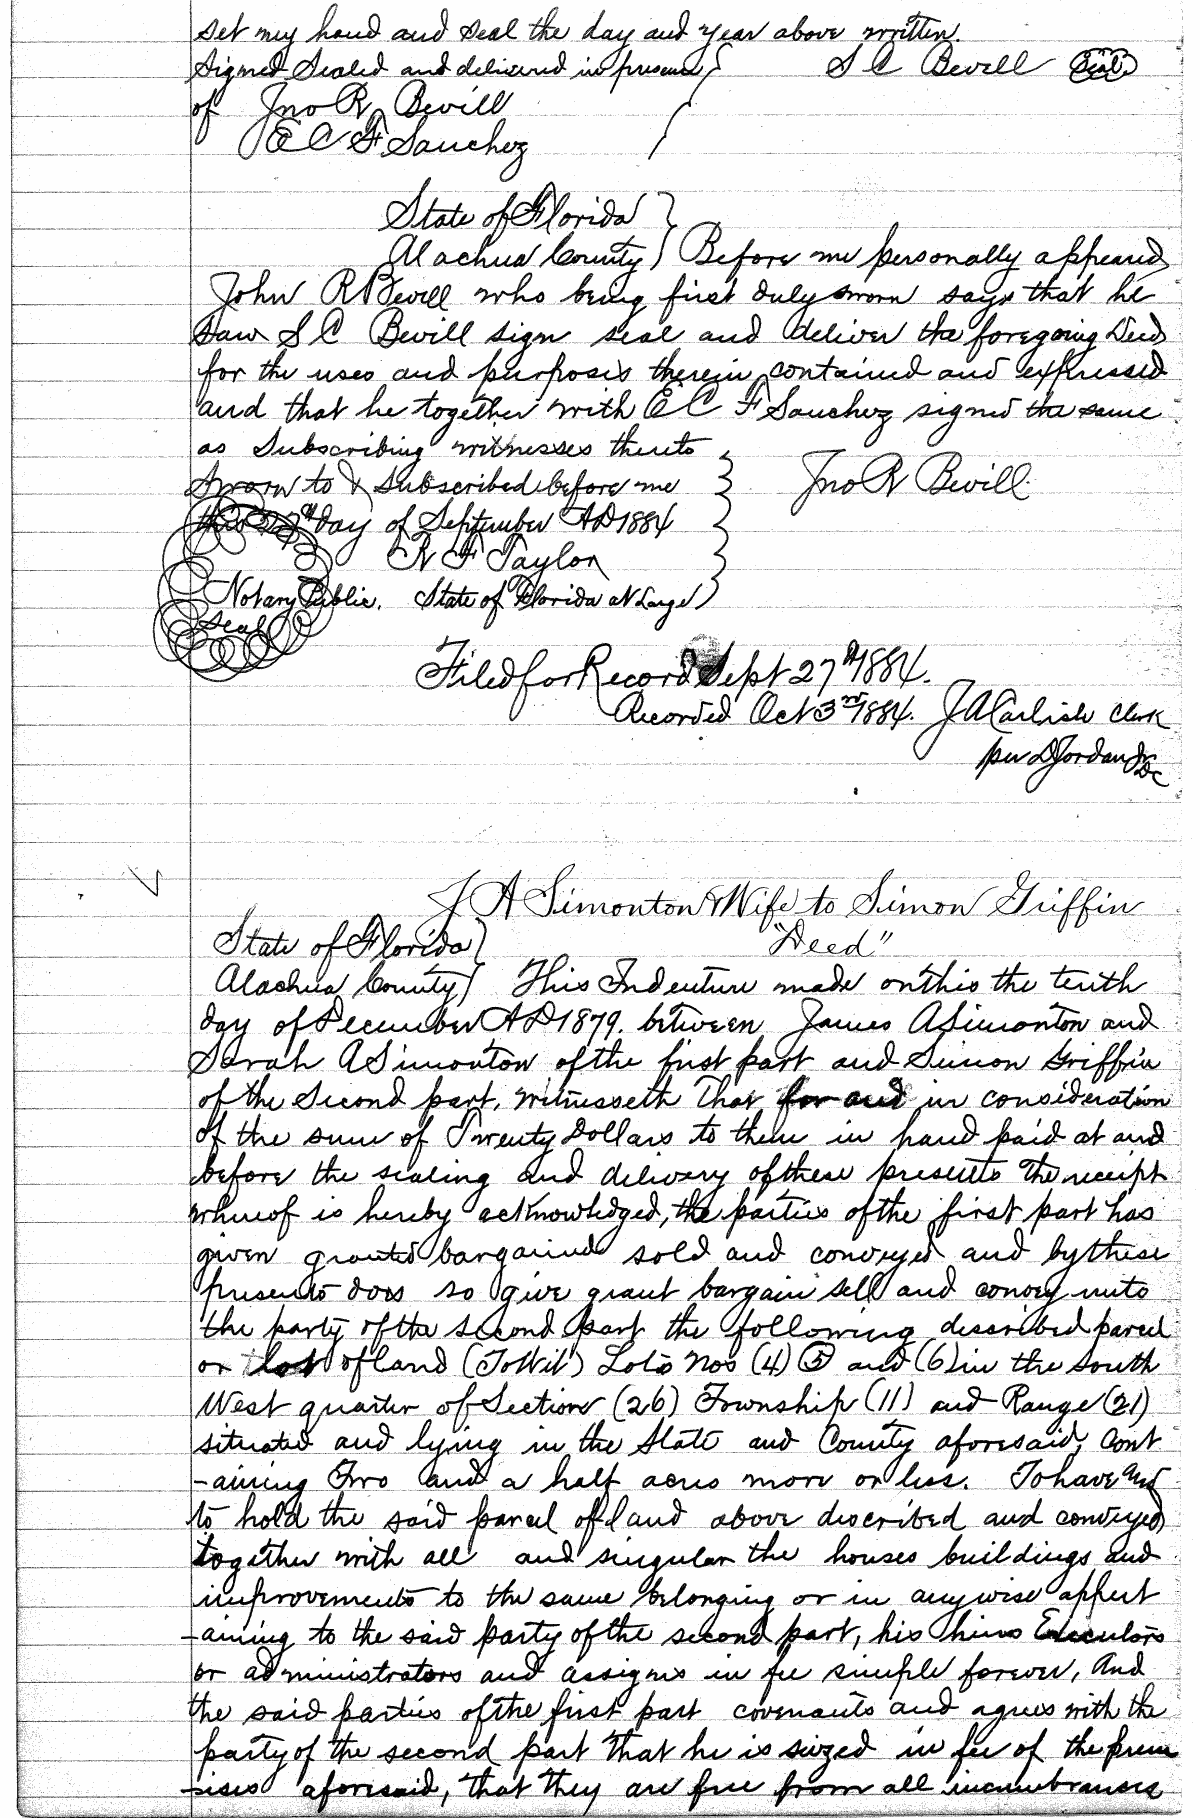 set my hand and seal the day and year above written.
Signed Sealed and delivered in presence S C Bevill Seal
of Jno R Bevill
E C F Sanchez
State of Florida
Alachua County Before me personally appeared
John R Bevill who being first duly sworn says that he
saw S C Bevill sign seal and deliver the foregoing Deed
for the uses and purposes therein contained and expressed
and that he together with E C F Sanchez signed the same
as Subscribing witnesses thereto
Sworn to & Subscribed before me Jno R Bevill.
this 27th day of September AD 1884
R F Taylor
Notary Public. State of Florida at Large
Seal
Filed for Record Sept 27th 1884.
Recorded Oct 3rd 1884. J A Carlisle Clerk
per D Jordan Jr DC
J A Simonton & Wife to Simon Griffin
State of Florida "Deed"
Alachua County This Indenture made on this the tenth
day of December AD 1879. between James A Simonton and
Sarah A Simonton of the first part and Simon Griffin
of the Second part, witnesseth That for and in consideration
of the sum of Twenty Dollars to them in hand paid at and
before the sealing and delivery of these presents the receipt
whereof is hereby acknowledged, the parties of the first part has
given granted bargained sold and conveyed and by these
presents does so give grant bargain sell and convey unto
the party of the second part the following described parcel
or lot of land (To Wit) Lots Nos (4) (5) and (6) in the South
West quarter of Section (26) Township (11) and Range (21)
situated and lying in the State and County aforesaid, Cont
-aining Two and a half acres more or less. To have and
to hold the said parcel of land above discribed and conveyed
together with all and singular the houses buildings and
improvements to the same belonging or in anywise appert
-aining to the said party of the second part, his heirs Executors
or administrators and assigns in fee simple forever, And
the said parties of the first part covenants and agrees with the
party of the second part that he is seized in fee of the prem
-ises aforesaid, that they are free from all incumbrances